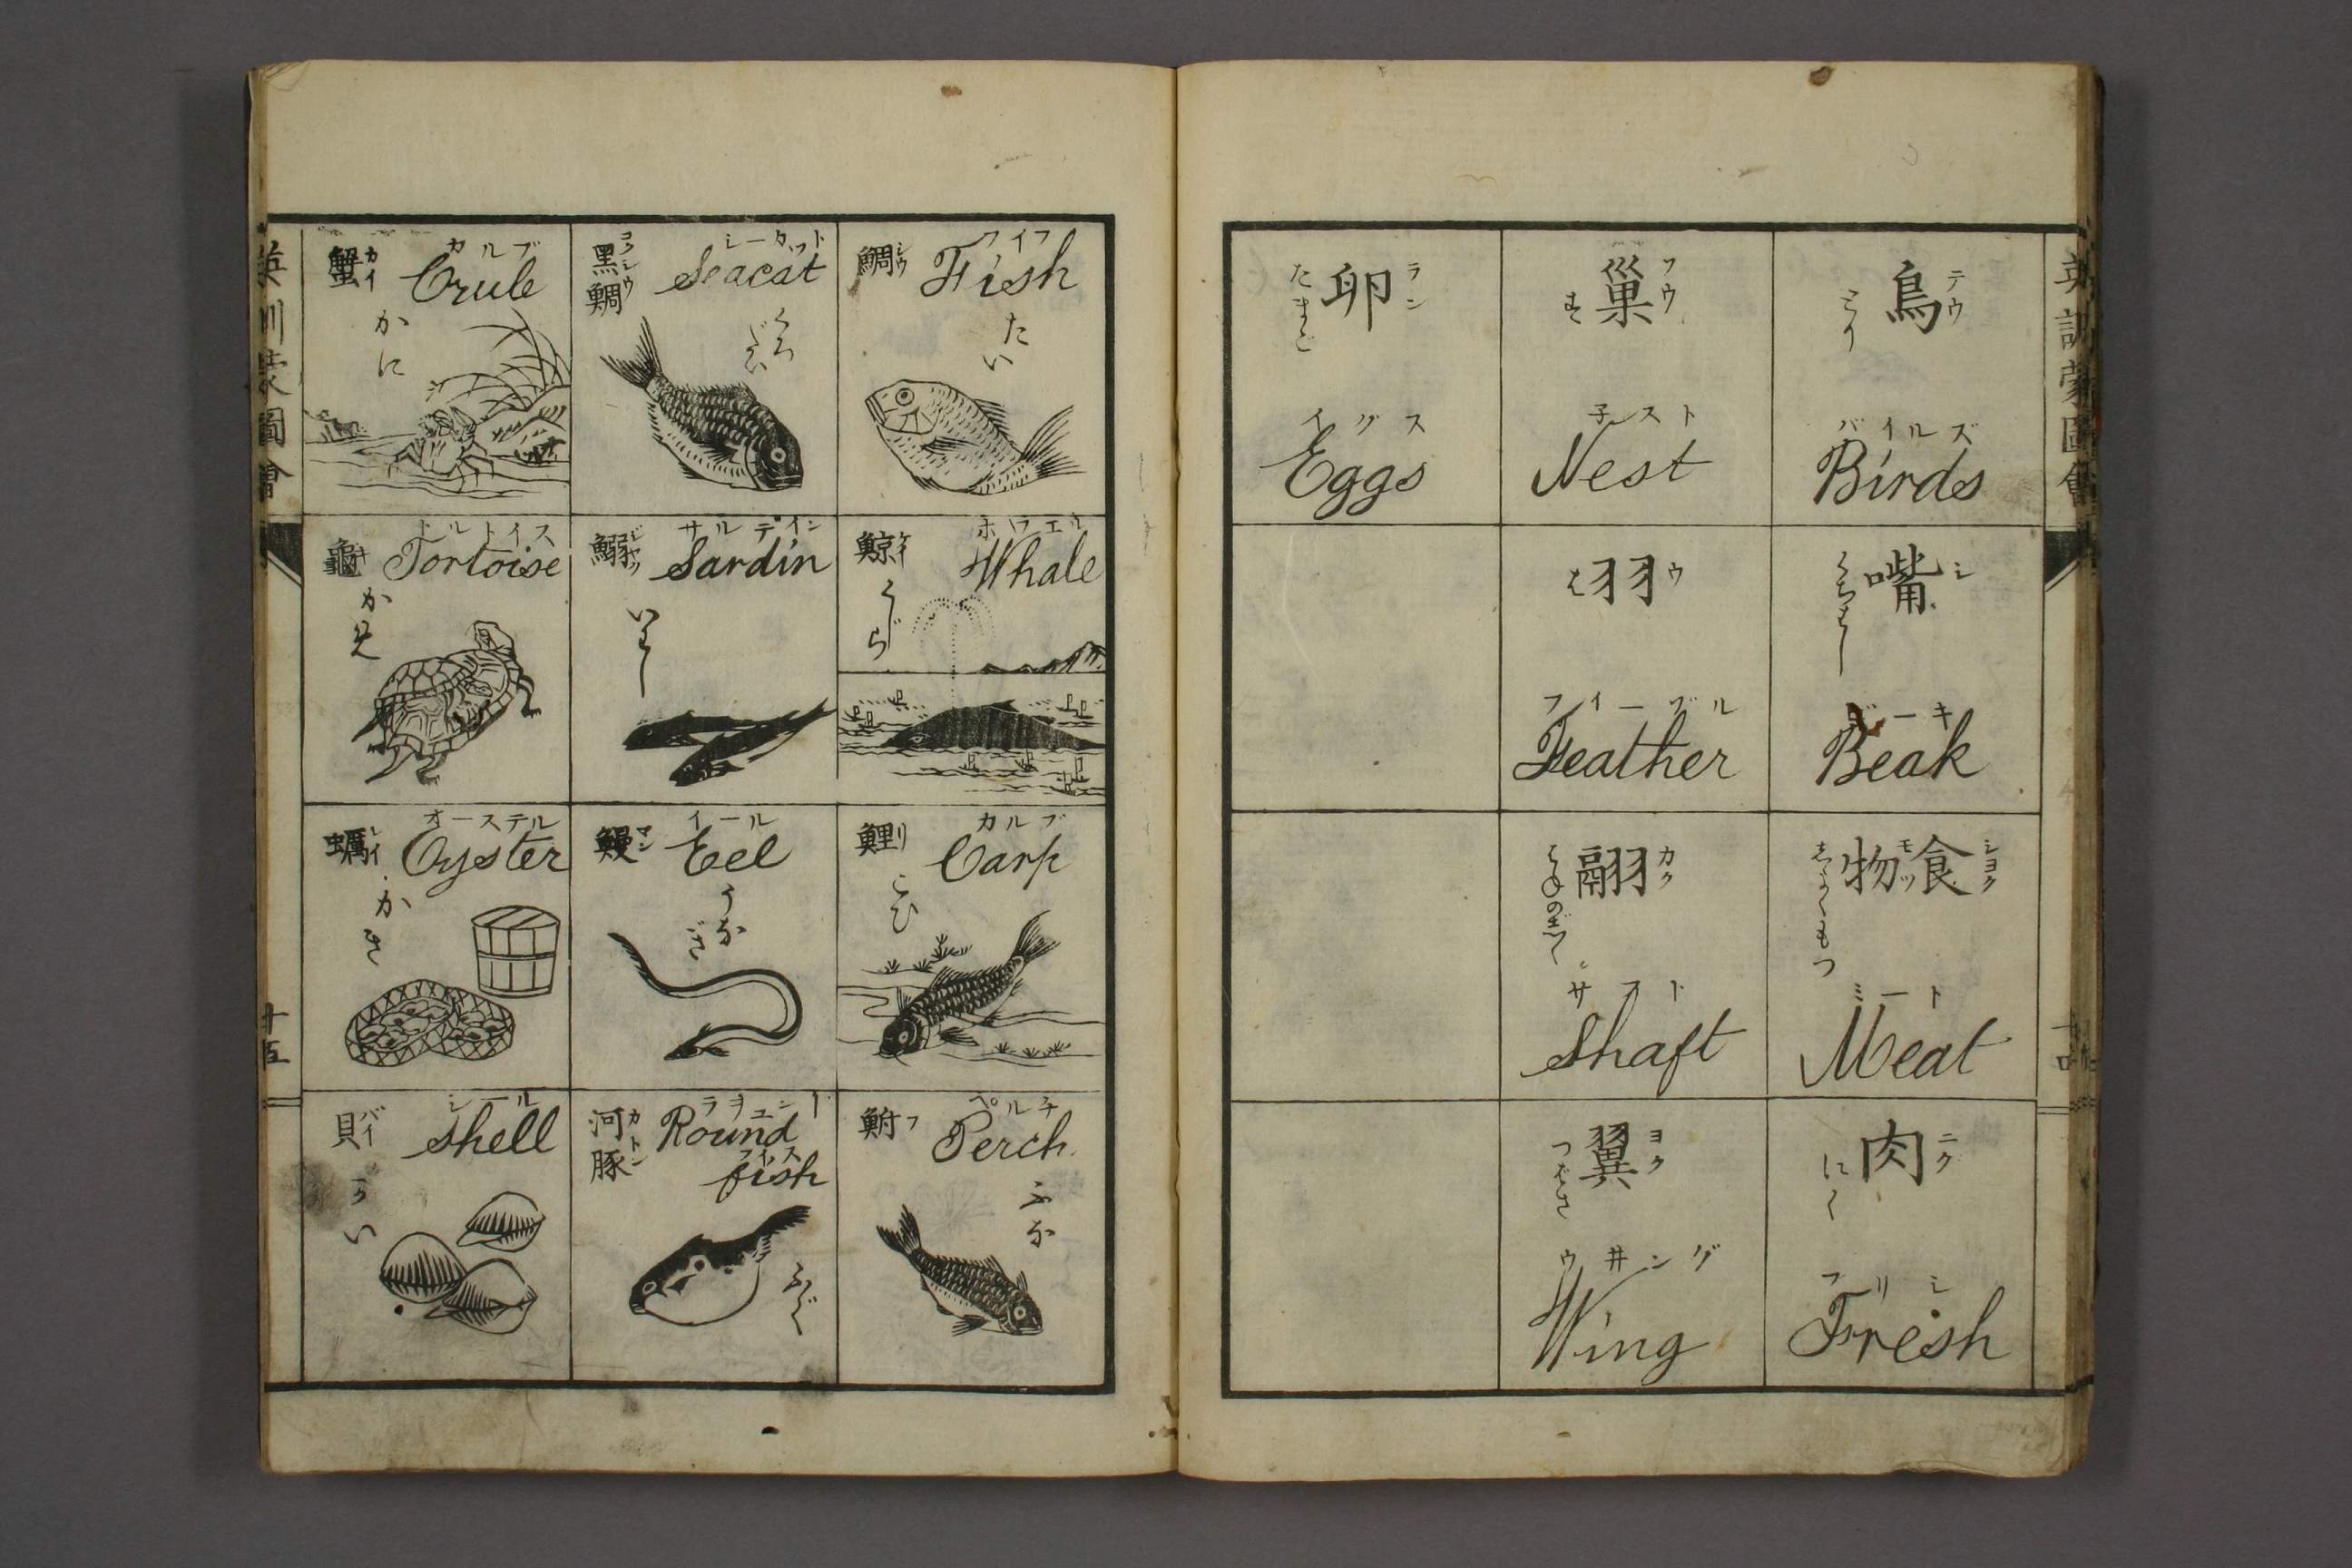 英訓蒙圖會
鳥
テウ
とり
バイルズ
Birds
嘴
シ
くちばし
ビーキ
Beak
食物
シヨク
モツ
しよくもつ
ミート
Meat
肉
ニク
にく
フリシ
Fresh
巣
フウ
す
子スト
Nest
羽
ウ
は
フイーブル
Feather
翮
カク
サフト
Shaft
翼
ヨク
つばさ
ウ井ング
Wing
卵
ラン
たまご
イグス
Eggs
フイフ
Fish
鯛
シウ
たい
ホワエル
Whale
鯨
ケイ
くじら
カルブ
Carp
鯉
リ
こひ
ペルチ
Perch
鮒
フ
ふな
シーカツト
Seacat
黒鯛
コクシウ
くろだい
サルデイン
Sardin
鰯
ジヤク
いわし
イール
Eel
鰻
マン
うなぎ
ラヲユンド
Round
フイス
fish
河豚
カトン
ふぐ
カルブ
Crule
蟹
カイ
かに
トルトイス
Tortoise
龜
キ
かめ
オーステル
Oyster
蠣
レイ
かき
シール
Shell
貝
バイ
かい
英訓蒙圖會
十五